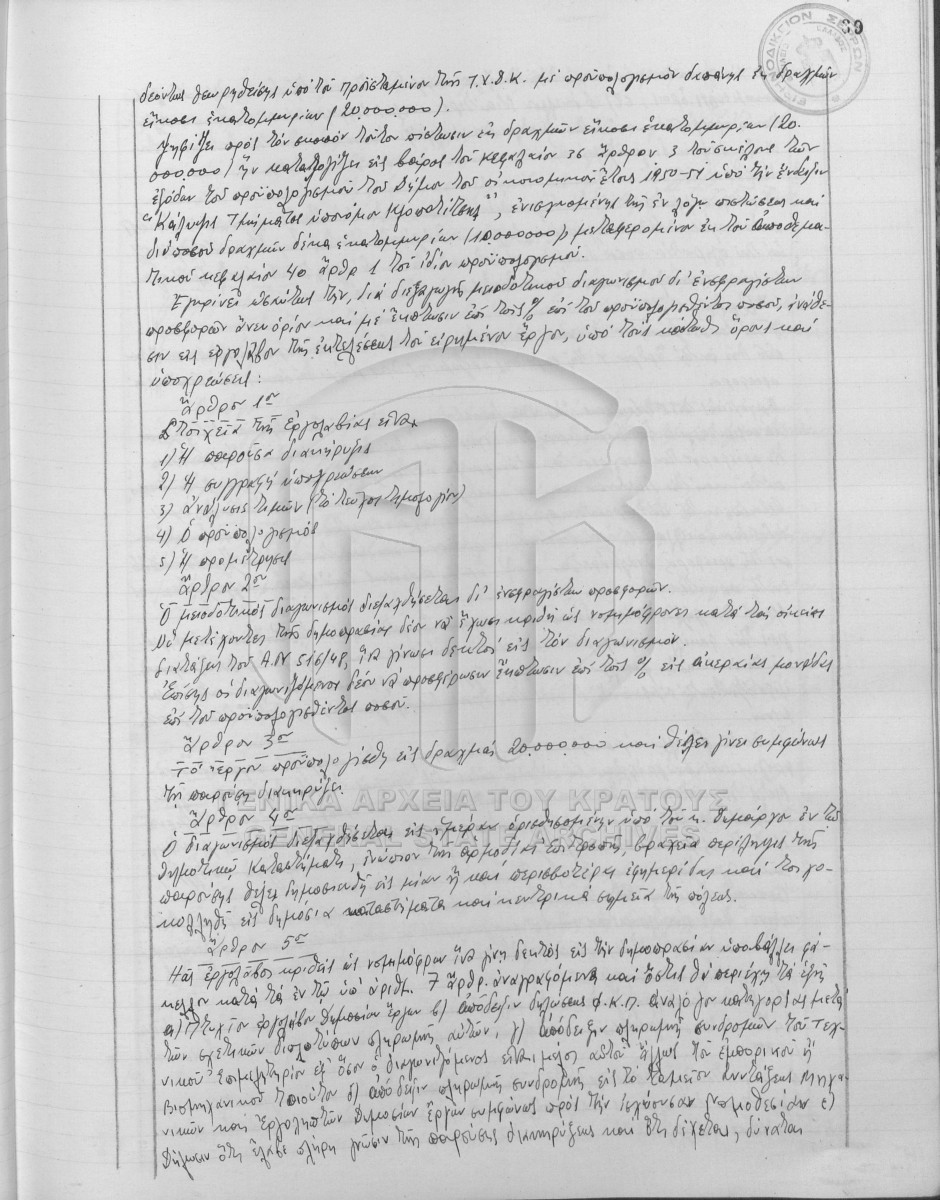 69
δεόντως θεωρηθείσης υπό του Προϊσταμένου της Τ.Υ.Δ.Κ. με προϋπολογισμόν δαπάνης εκ δραχμών
είκοσι εκατομμυρίων (20.000.000).
Ψηφίζει προς τον σκοπόν τούτον πίστωσιν εκ δραχμών είκοσι εκατομμυρίων (20.
000.000) ην καταλογίζει εις βάρος του κεφαλαίου 36 άρθρον 3 του σκέλους των
εξόδων του προϋπολογισμού του Δήμου του οικονομικού έτους 1950-51 υπό την ένδειξιν
"Κάλυψις τμήματος υπονόμου", ενισχυομένης της εν λόγω πιστώσεως και
διά ποσού δραχμών δέκα εκατομμυρίων (10.000.000) μεταφερομένου εκ του αποθεμα-
τικού κεφαλαίου 40 άρθρ 1 του ιδίου προϋπολογισμού.
Εγκρίνει ωσαύτως την, διά διεξαγωγής μειοδοτικού διαγωνισμού δι' ενσφραγίστων
προσφορών άνευ ορίου και με έκπτωσιν επί τοις % επί του προϋπολογισθέντος ποσού, ανάθε-
σιν εις εργολάβον της εκτελέσεως του ειρημένου έργου, υπό τους κάτωθι όρους και
υποχρεώσεις:
Άρθρον 1ον
Στοιχεία της εργολαβίας είναι
1) Η παρούσα διακήρυξις
2) Η συγγραφή υποχρεώσεων
3) Ανάλυσις τιμών (το τεύχος τιμολογίου)
4) Ο προϋπολογισμός
5) Η προμέτρησις
Άρθρον 2ον
Ο μειοδοτικός διαγωνισμός διεξαχθήσεται δι' ενσφραγίστων προσφορών.
Οι μετέχοντες της δημοπρασίας δέον να έχωσι κριθή ως νομιμόφρονες κατά τας οικείας
διατάξεις του Α.Ν 516/48, ίνα γίνωσι δεκτοί εις τον διαγωνισμόν.
Επίσης οι διαγωνιζόμενοι δέον να προσφέρωσιν έκπτωσιν επί τοις % εις ακεραίας μονάδας
επί του προϋπολογισθέντος ποσού.
Άρθρον 3ον
Το έργον προϋπολογίσθη εις δραχμάς 20.000.000 και θέλει γίνει συμφώνως
τη παρούση διακηρύξει.
Άρθρον 4ον
Ο διαγωνισμός διεξαχθήσεται εις ημέραν ορισθησομένην υπό του κ. Δημάρχου εν τω
Δημοτικώ Καταστήματι, ενώπιον της αρμοδίας επιτροπής, βραχεία περίληψις της
παρούσης θέλει δημοσιευθή εις μίαν ή και περισσοτέρας εφημερίδας και τοιχο-
κολληθή εις δημόσια καταστήματα και κεντρικά σημεία της πόλεως.
Άρθρον 5ον
Πας εργολάβος κριθείς ως νομιμόφρων ίνα γίνη δεκτός εις την δημοπρασίαν υποβάλλει φά-
κελλον κατά τα εν τω υπ' αριθμ. 7 άρθρ. αναγραφόμενα και όστις θα περιέχη τα εξής
α) Πτυχίον εργολάβου Δημοσίων Έργων β) απόδειξιν δηλώσεως Φ.Κ.Π. αναλόγου κατηγορίας μετά
των σχετικών διπλοτύπων πληρωμής αυτών, γ) απόδειξιν πληρωμής συνδρομών του Τεχ-
νικού Επιμελητηρίου εφ' όσον ο διαγωνιζόμενος είναι μέλος αυτού άλλως του εμπορικού ή
Βιομηχανικού τοιούτου δ) απόδειξιν πληρωμής συνδρομής εις το ταμείον συντάξεως Μηχα-
νικών και Εργοληπτών Δημοσίων Έργων συμφώνως προς την ισχύουσαν νομοθεσίαν ε)
Δήλωσιν ότι έλαβε πλήρη γνώσιν της παρούσης διακηρύξεως και ότι δέχεται, δύναται
ΓΕΝΙΚΑ ΑΡΧΕΙΑ ΤΟΥ ΚΡΑΤΟΥΣ
GENERAL STATE ARCHIVES